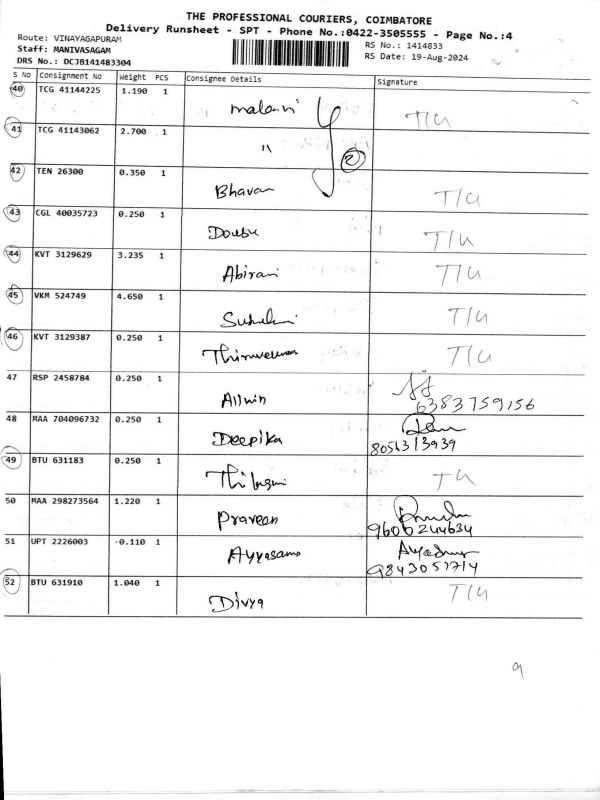 THE PROFESSIONAL COURIERS, COIMBATORE
Delivery Runsheet - SPT - Phone No.:0422-3505555 - Page No.:4
Route: VINAYAGAPURAM
RS No.: 1414833
Staff: MANIVASAGAM
RS Date: 19-Aug-2024
DRS No.: DCJB141483304
S No Consignment No Weight PCS Consignee Details Signature
40 TCG 41144225 1.190 1 T/U
41 TCG 41143062 2.700 1 " 2
42 TEN 26300 0.350 1 Bhavan T/U
43 CGL 40035723 0.250 1 T/U
44 KVT 3129629 3.235 1 Abirami T/U
45 VKM 524749 4.650 1 T/U
46 KVT 3129387 0.250 1 T/U
47 RSP 2458784 0.250 1 Allwin 6383759156
48 MAA 704096732 0.250 1 Deepika 8056313939
49 BTU 631183 0.250 1 T/U
50 MAA 298273564 1.220 1 Praveen 9600244634
51 UPT 2226003 -0.110 1 Ayyasamy 9843051714
52 BTU 631910 1.040 1 Divya T/U
9